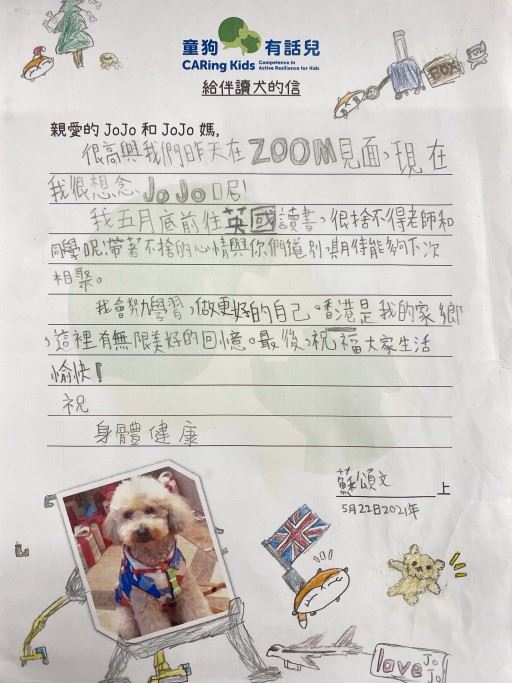 童狗有話兒
CARing Kids Competence in
Active Resilience for Kids
給伴讀犬的信
BOX
親愛的 JoJo 和 JoJo 媽,
很高興我們昨天在ZOOM見面,現在
我很想念JoJo呢!
我五月底前往英國讀書,很捨不得老師和
同學呢,帶著不捨的心情與你們道別,期待能夠下次
相聚。
我會努力學習,做更好的自己。香港是我的家鄉
,這裡有無限美好的回憶。最後,祝福大家生活
愉快!
祝
身體健康
蘇頌文 上
5月22日2021年
love JoJo